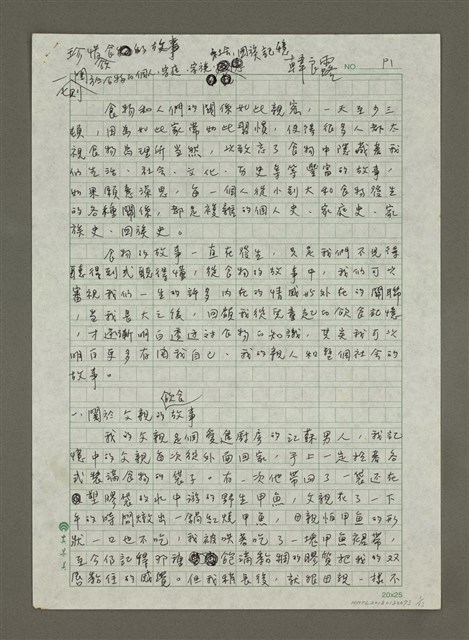 珍惜飲食的故事
韓良露
NO P1
關於食物的個人、家庭、家族、社會、國族記憶
食物和人們的關係如此親密，一天至少三
頓，因為如此家常如此習慣，使得很多人都太
視食物為理所當然，以致忘了食物中隱藏著我
們生活、社會、文化、歷史等等豐富的故事，
如果願意深思，每一個人從小到大和食物發生
的各種關係，都是複雜的個人史、家庭史、家
族史、國族史。
食物的故事一直在發生，只是我們不見得
聽得到或聽得懂，從食物的故事中，我們可以
審視我們一生的許多內在的情感和外在的關聯
，當我長大之後，回顧我從兒童起的飲食記憶
，才逐漸明白透過對食物的知識，其實我可以
明白更多有關我自己、我的親人和整個社會的
故事。
一、關於父親的飲食故事
我的父親是個愛進廚房的江蘇男人，我記
憶中的父親每次從外面回家，手上一定拎著各
式裝滿食物的袋子。有一次他帶回了一袋還在
塑膠袋的水中游的野生甲魚，父親花了一下
午的時間燉出一鍋紅燒甲魚，母親怕甲魚的形
狀一口也不吃，我被哄著吃了一塊甲魚裙帶，
至今仍記得那種飽滿黏稠的膠質把我的双
唇黏住的感覺。但我稍長後，就跟母親一樣不
20x25